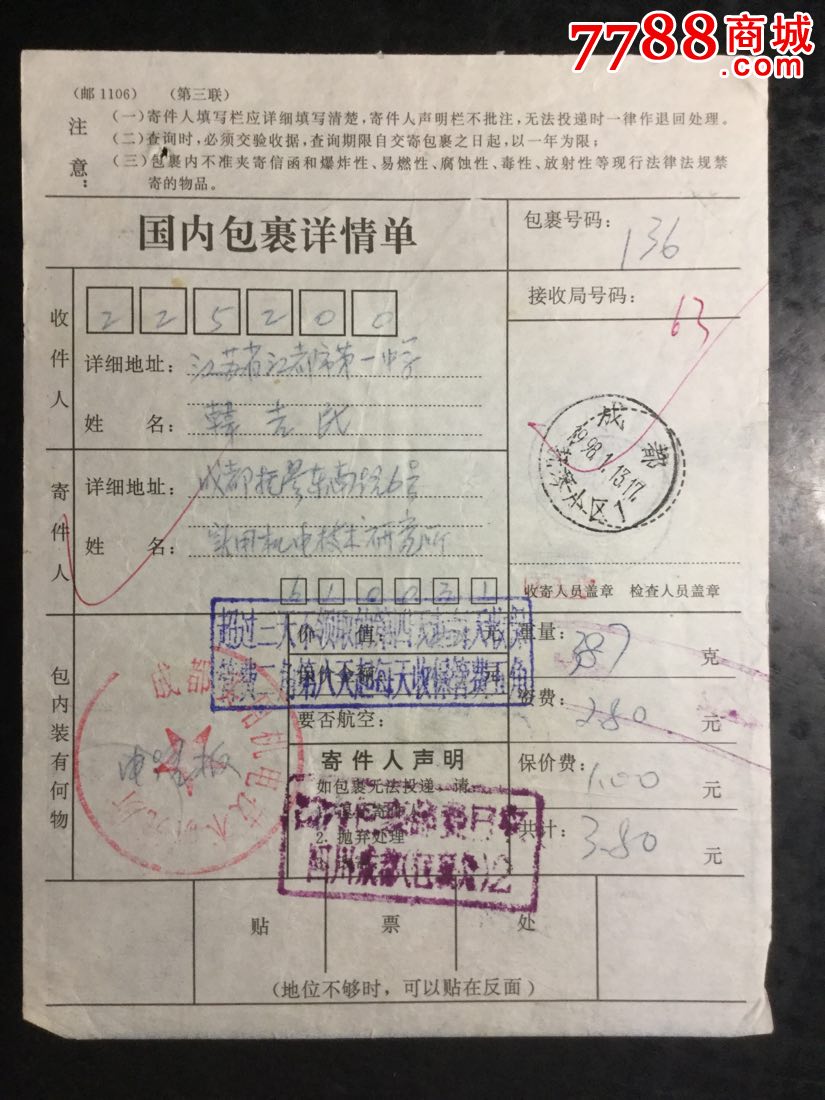 7788商城
(邮1106) (第三联)
注意:
(一)寄件人填写栏应详细填写清楚,寄件人声明栏不批注,无法投递时一律作退回处理。
(二)查询时,必须交验收据,查询期限自交寄包裹之日起,以一年为限;
(三)包裹内不准夹寄信函和爆炸性、易燃性、腐蚀性、毒性、放射性等现行法律法规禁
寄的物品。
国内包裹详情单
包裹号码:
136
接收局号码:
63
收件人
225200
详细地址: 江苏省江都市第一中学
姓 名: 韩志民
寄件人
详细地址: 成都
姓 名: 实用机电技术研究所
610031
成都
1998.1.13.17
收寄人员盖章 检查人员盖章
包内装有何物
价 值: 元
超过三天不领取的第四天起每天收保
管费二角第八天起每天收保管费五角
要否航空:
寄件人声明
如包裹无法投递 请:
2. 抛弃处理
四川成都
重量: 387 克
资费: 2.80 元
保价费: 1.00 元
共计: 3.80 元
贴 票 处
(地位不够时,可以贴在反面)